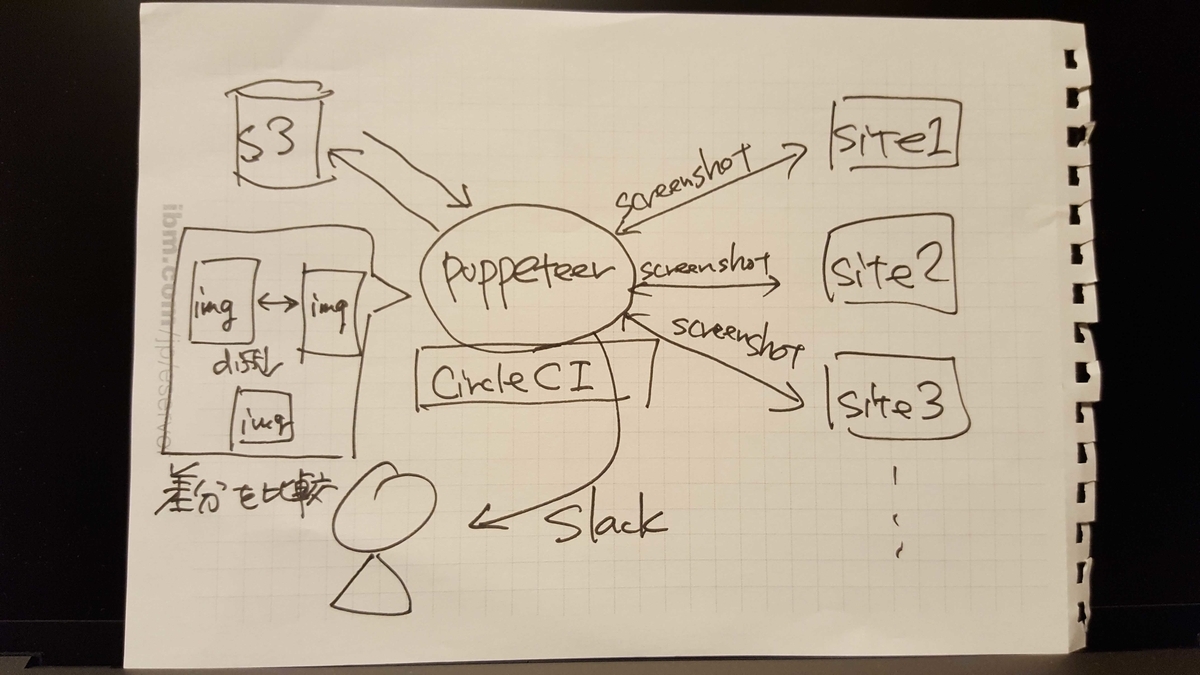 S3
screenshot
site1
puppeteer
screenshot
site2
img
img
diff
img
screenshot
site3
CircleCI
差分を比較
Slack
ibm.com/jp/eserve